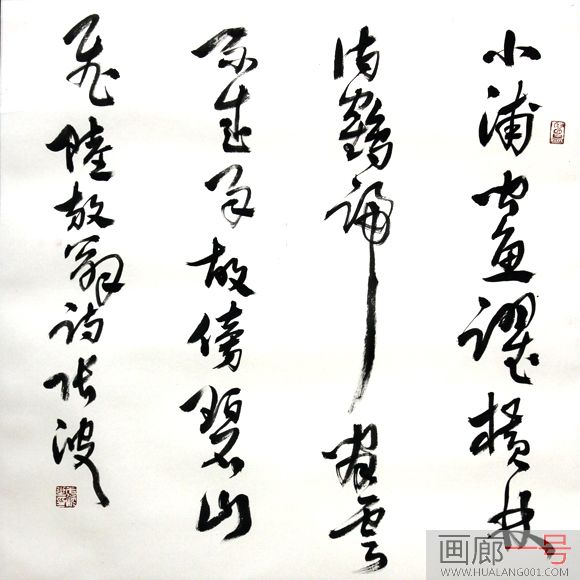 小浦聞魚躍橫林
待鶴歸閒雲
不成雨故傍碧山
飛陸放翁詩張波
画廊一号
WWW.HUALANG001.COM